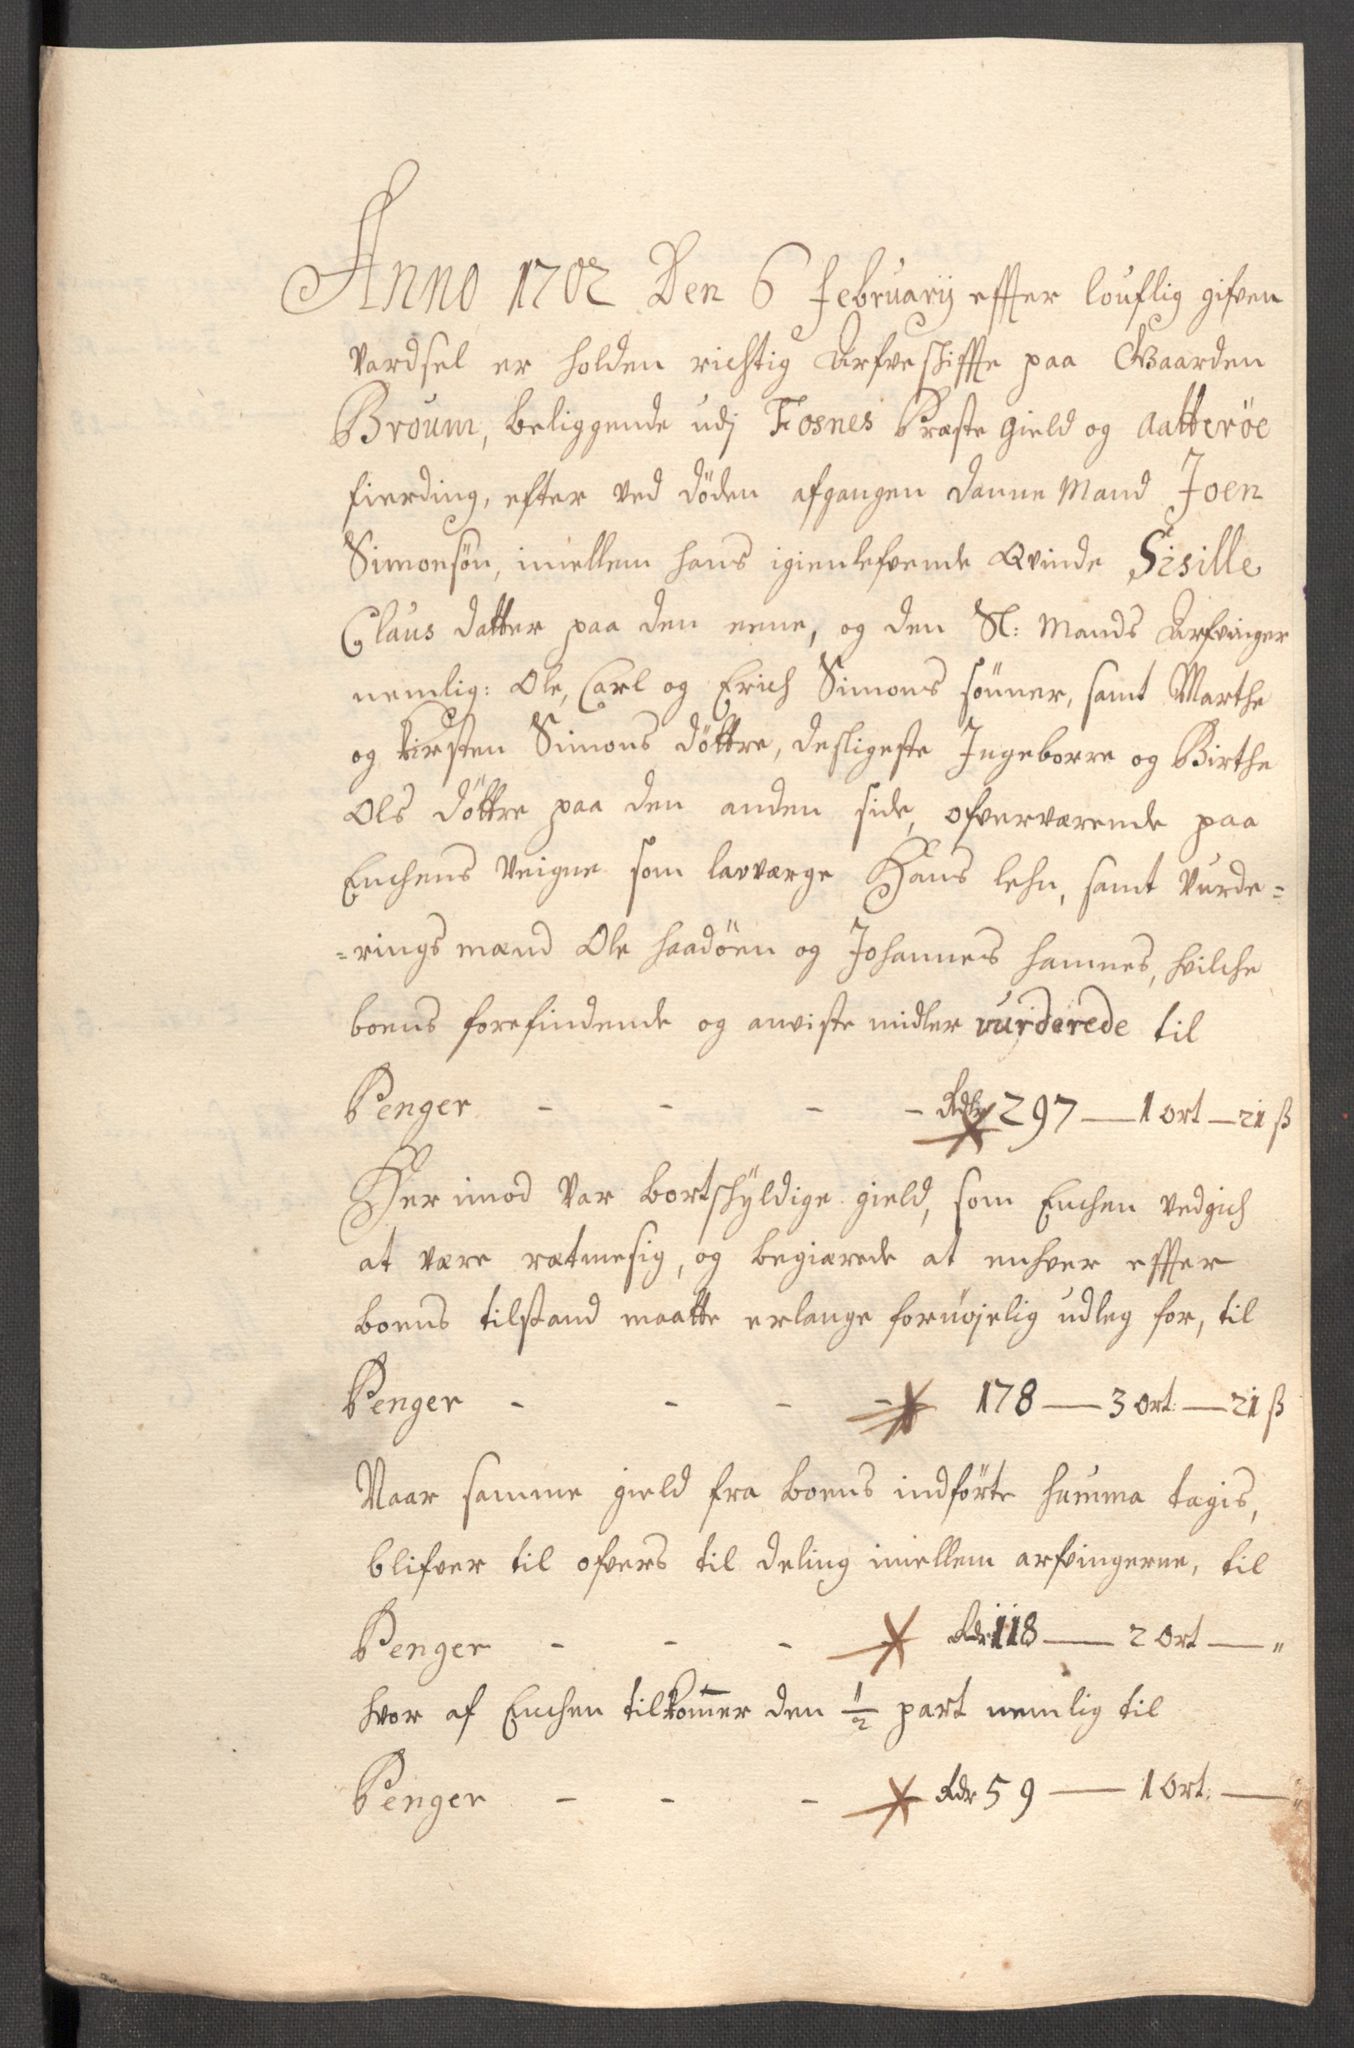 Anno 1702 Den 6 Februarij effter louflig gifven
vardsel er holden richtig Arfveschiffte paa Gaarden
Broum, beliggende udj Fosnes Præste gield og Aatterøe
fierding, efter ved døden afgangen danne Mand Joen
Simonsøn, imellem hans igienlefvende Qvinde Sisille
Claus datter paa den eene, og den Sl: Mands Arfvinger
nemlig: Ole, Carl og Erich Simons sønner, samt Marthe
og Kirsten Simons døttre, desligeste Ingeborre og Birthe
Ols døttre paa den anden side, ofverværende paa
Enchens Veigne som lavværge Hans lehn, samt Vurde=
=rings mænd Ole haadøen og Johannes hamnes, hvilche
boens forefindende og anviste midler vurderede til
Penger - - - - Rdr 297 — 1 ort — 21 ß
Her imod var bortschÿldige gield, som Enchen vedgich
at være rætmesig, og begiærede at enhver effter
boens tilstand maatte erlange fornøjelig udleg for, til
Penger - - - - 178 — 3 ort: — 21 ß
Naar samme gield fra boens indførte summa tagis,
blifver til ofvers til deling imellem arfvingerne, til
Penger - - - Rdr 118 — 2 ort — "
hvor af Enchen tilkommer den 1/2 part nemlig til
Penger - - - Rdr 59 — 1 ort: — "